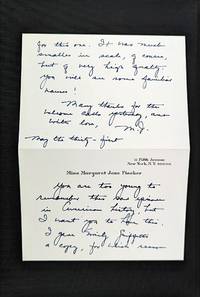 for this one. It was much
smaller in scale, of course,
but of very high quality
you will see some familiar
names!
Many thanks for the
welcome call yesterday and
with love,
M.J.
May the thirty-first
11 Fifth Avenue
New York, N.Y.
Miss Margaret Jane Fischer
You are too young to
remember this was
in American history but
I want you to have this.
I gave Emily
a copy, for which reason